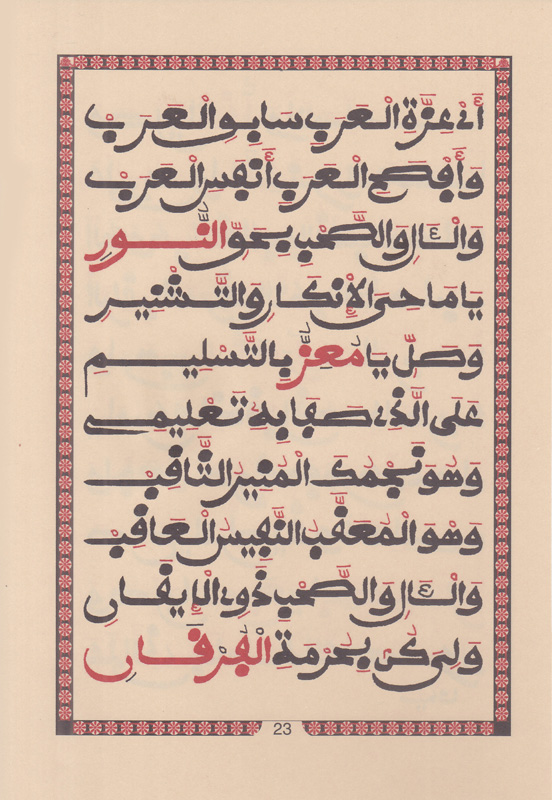 أَنْ عِزَّةِ الْعَرَبِ سَابِقِ الْعَرَبْ
وَأَفْصَحِ الْعَرَبِ أَنْفَسِ الْعَرَبْ
وَالْآلِ وَالصَّحْبِ بِحَقِّ النُّورِ
يَا مَاحِيَ الْإِنْكَارِ وَالتَّشْنِيرِ
وَصَلِّ يَا مُعِزُّ بِالتَّسْلِيمِ
عَلَى الَّذِي صَفَا بِهِ تَعْلِيمِي
وَهُوَ نَجْمُكَ الْمُنِيرُ الثَّاقِبُ
وَهْوَ الْمُعَقِّبُ النَّفِيسُ الْعَاقِبُ
وَالْآلِ وَالصَّحْبِ ذَوِي الْإِيقَانِ
وَلِيَ كُنْ بِحُرْمَةِ الْفُرْقَانِ
23